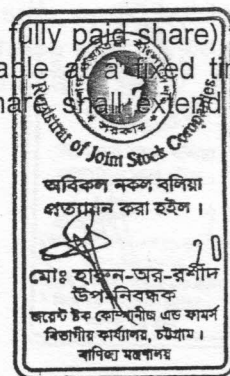 fully paid share)
able at a fixed ti
hare shall extend
সরকার
Registrar of Joint Stock Companies
অবিকল নকল বলিয়া
প্রত্যায়ন করা হইল ।
20
মোঃ হারুন-অর-রশীদ
উপ-নিবন্ধক
জয়েন্ট ষ্টক কোম্পানীজ এন্ড ফার্মস
বিভাগীয় কার্যালয়, চট্টগ্রাম ।
বাণিজ্য মন্ত্রণালয়